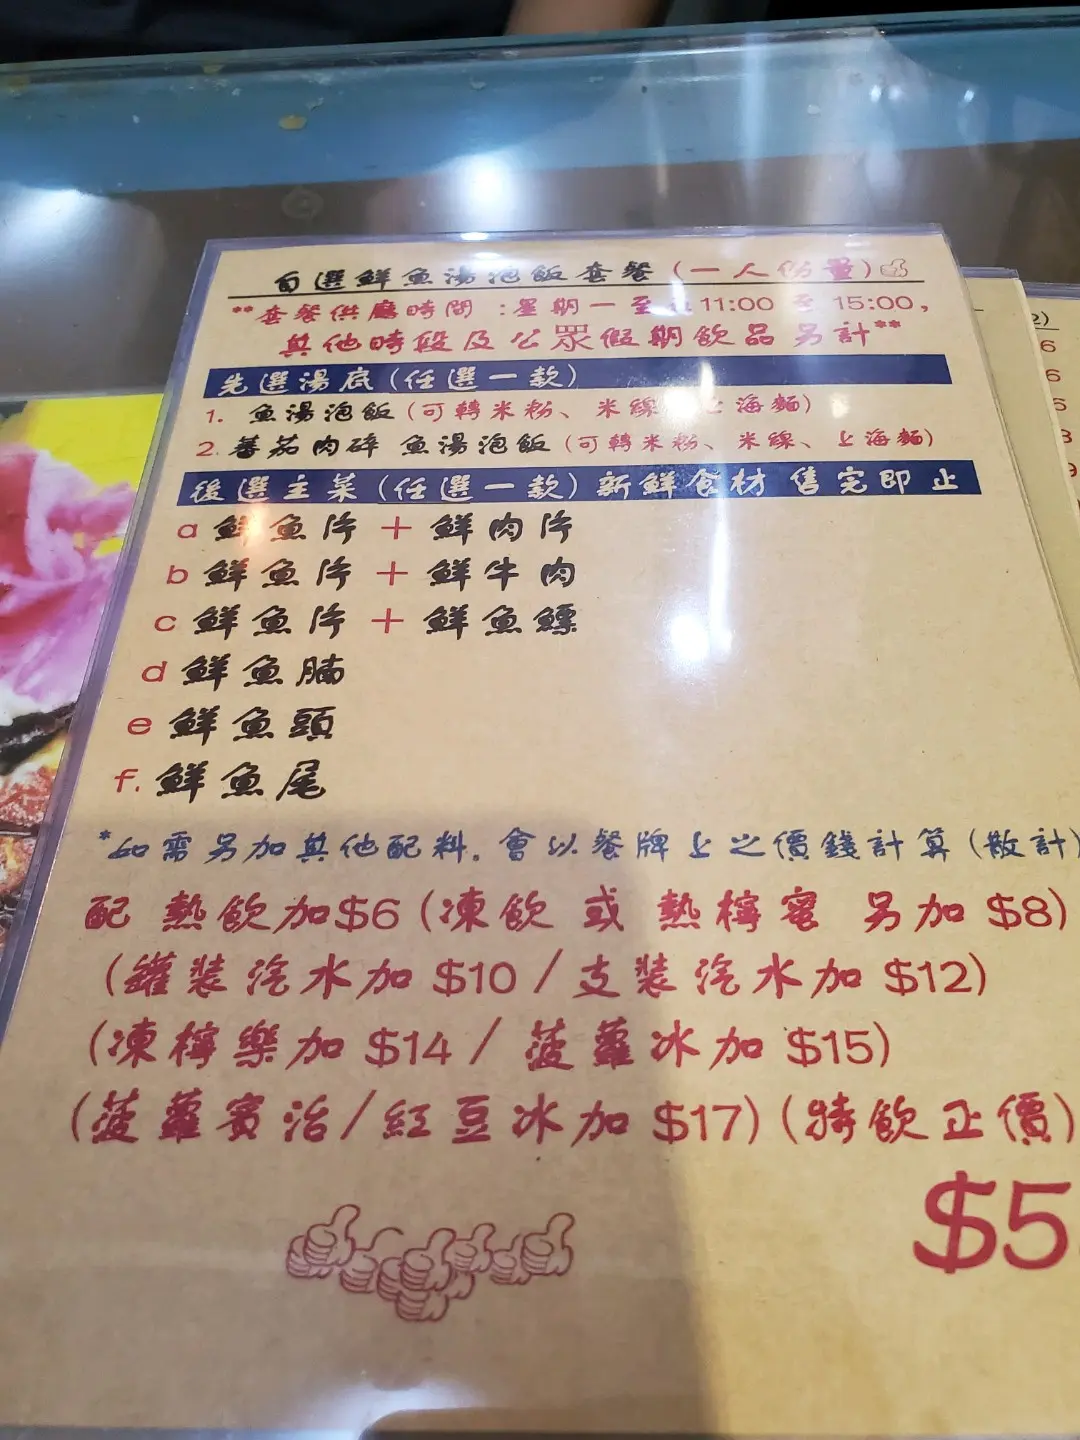 自選鮮魚湯泡飯套餐(一人份量)
**套餐供應時間 :星期一至 11:00 至 15:00,
其他時段及公眾假期飲品另計**
先選湯底(任選一款)
1. 魚湯泡飯(可轉米粉、米線 上海麵)
2. 蕃茄肉碎 魚湯泡飯(可轉米粉、米線、上海麵)
後選主菜(任選一款) 新鮮食材 售完即止
a 鮮魚片 + 鮮肉片
b 鮮魚片 + 鮮牛肉
c 鮮魚片 + 鮮魚鰾
d 鮮魚腩
e 鮮魚頭
f. 鮮魚尾
*如需另加其他配料。會以餐牌上之價錢計算(散計)
配 熱飲加$6(凍飲 或 熱檸蜜 另加 $8)
(罐裝汽水加 $10 / 支裝汽水加 $12)
(凍檸樂加 $14 / 菠蘿冰加 $15)
(菠蘿賓治/紅豆冰加 $17)(特飲正價)
$5
2)
6
6